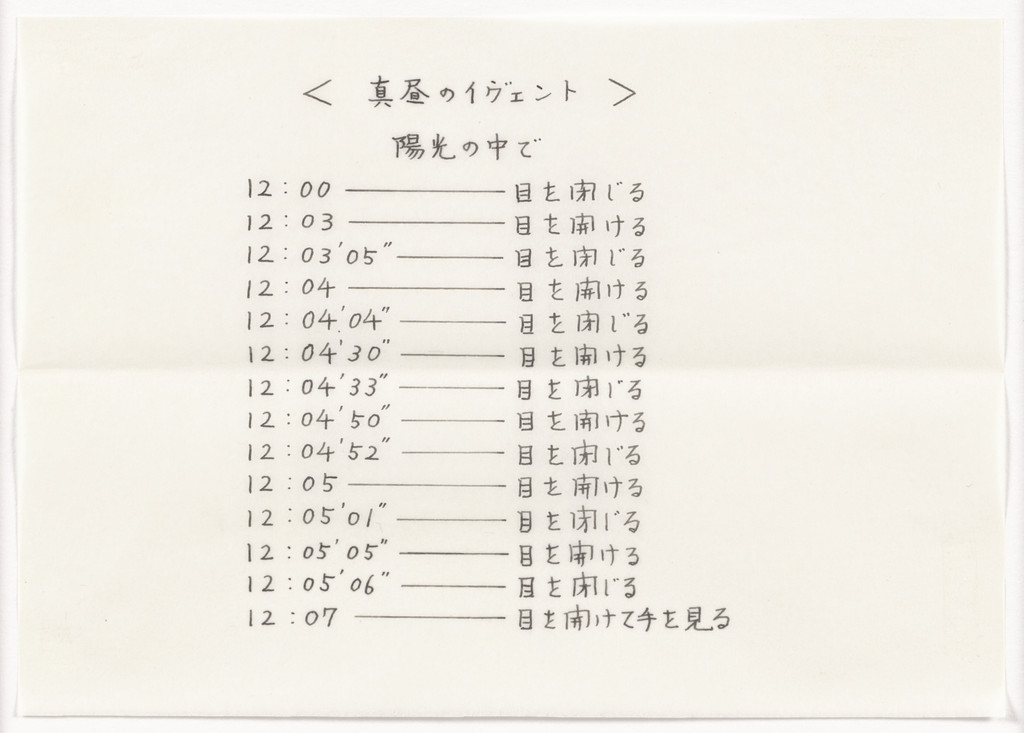 < 真昼のイヴェント >
陽光の中で
12:00 ——— 目を閉じる
12:03 ——— 目を開ける
12:03'05" ——— 目を閉じる
12:04 ——— 目を開ける
12:04'04" ——— 目を閉じる
12:04'30" ——— 目を開ける
12:04'33" ——— 目を閉じる
12:04'50" ——— 目を開ける
12:04'52" ——— 目を閉じる
12:05 ——— 目を開ける
12:05'01" ——— 目を閉じる
12:05'05" ——— 目を開ける
12:05'06" ——— 目を閉じる
12:07 ——— 目を開けて手を見る